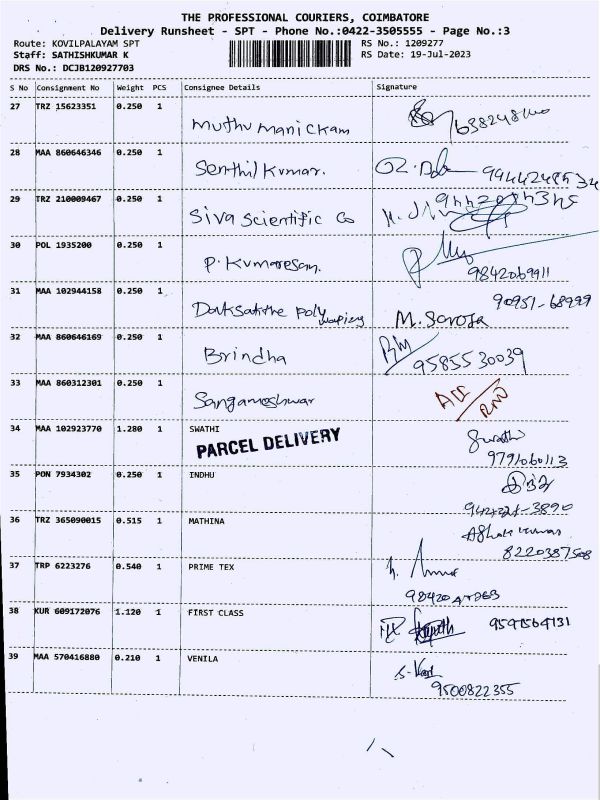 THE PROFESSIONAL COURIERS, COIMBATORE
Delivery Runsheet - SPT - Phone No.:0422-3505555 - Page No.:3
Route: KOVILPALAYAM SPT RS No.: 1209277
Staff: SATHISHKUMAR K RS Date: 19-Jul-2023
DRS No.: DCJB120927703
S No Consignment No Weight PCS Consignee Details Signature
27 TRZ 15623351 0.250 1
muthu manickam
28 MAA 860646346 0.250 1
Senthil Kumar.
29 TRZ 210009467 0.250 1
Siva Scientific Co
30 POL 1935200 0.250 1
P. Kumaresan.
9842069911
31 MAA 102944158 0.250 1 90951-68999
Poly M. Saroja
32 MAA 860646169 0.250 1
Brindha 9585530039
33 MAA 860312301 0.250 1
Sangameshwar
34 MAA 102923770 1.280 1 SWATHI Swathi
PARCEL DELIVERY
9791060113
35 PON 7934302 0.250 1 INDHU இந்து
36 TRZ 365090015 0.515 1 MATHINA
8220387508
37 TRP 6223276 0.540 1 PRIME TEX
38 KUR 609172076 1.120 1 FIRST CLASS
39 MAA 570416880 0.210 1 VENILA
9500822355